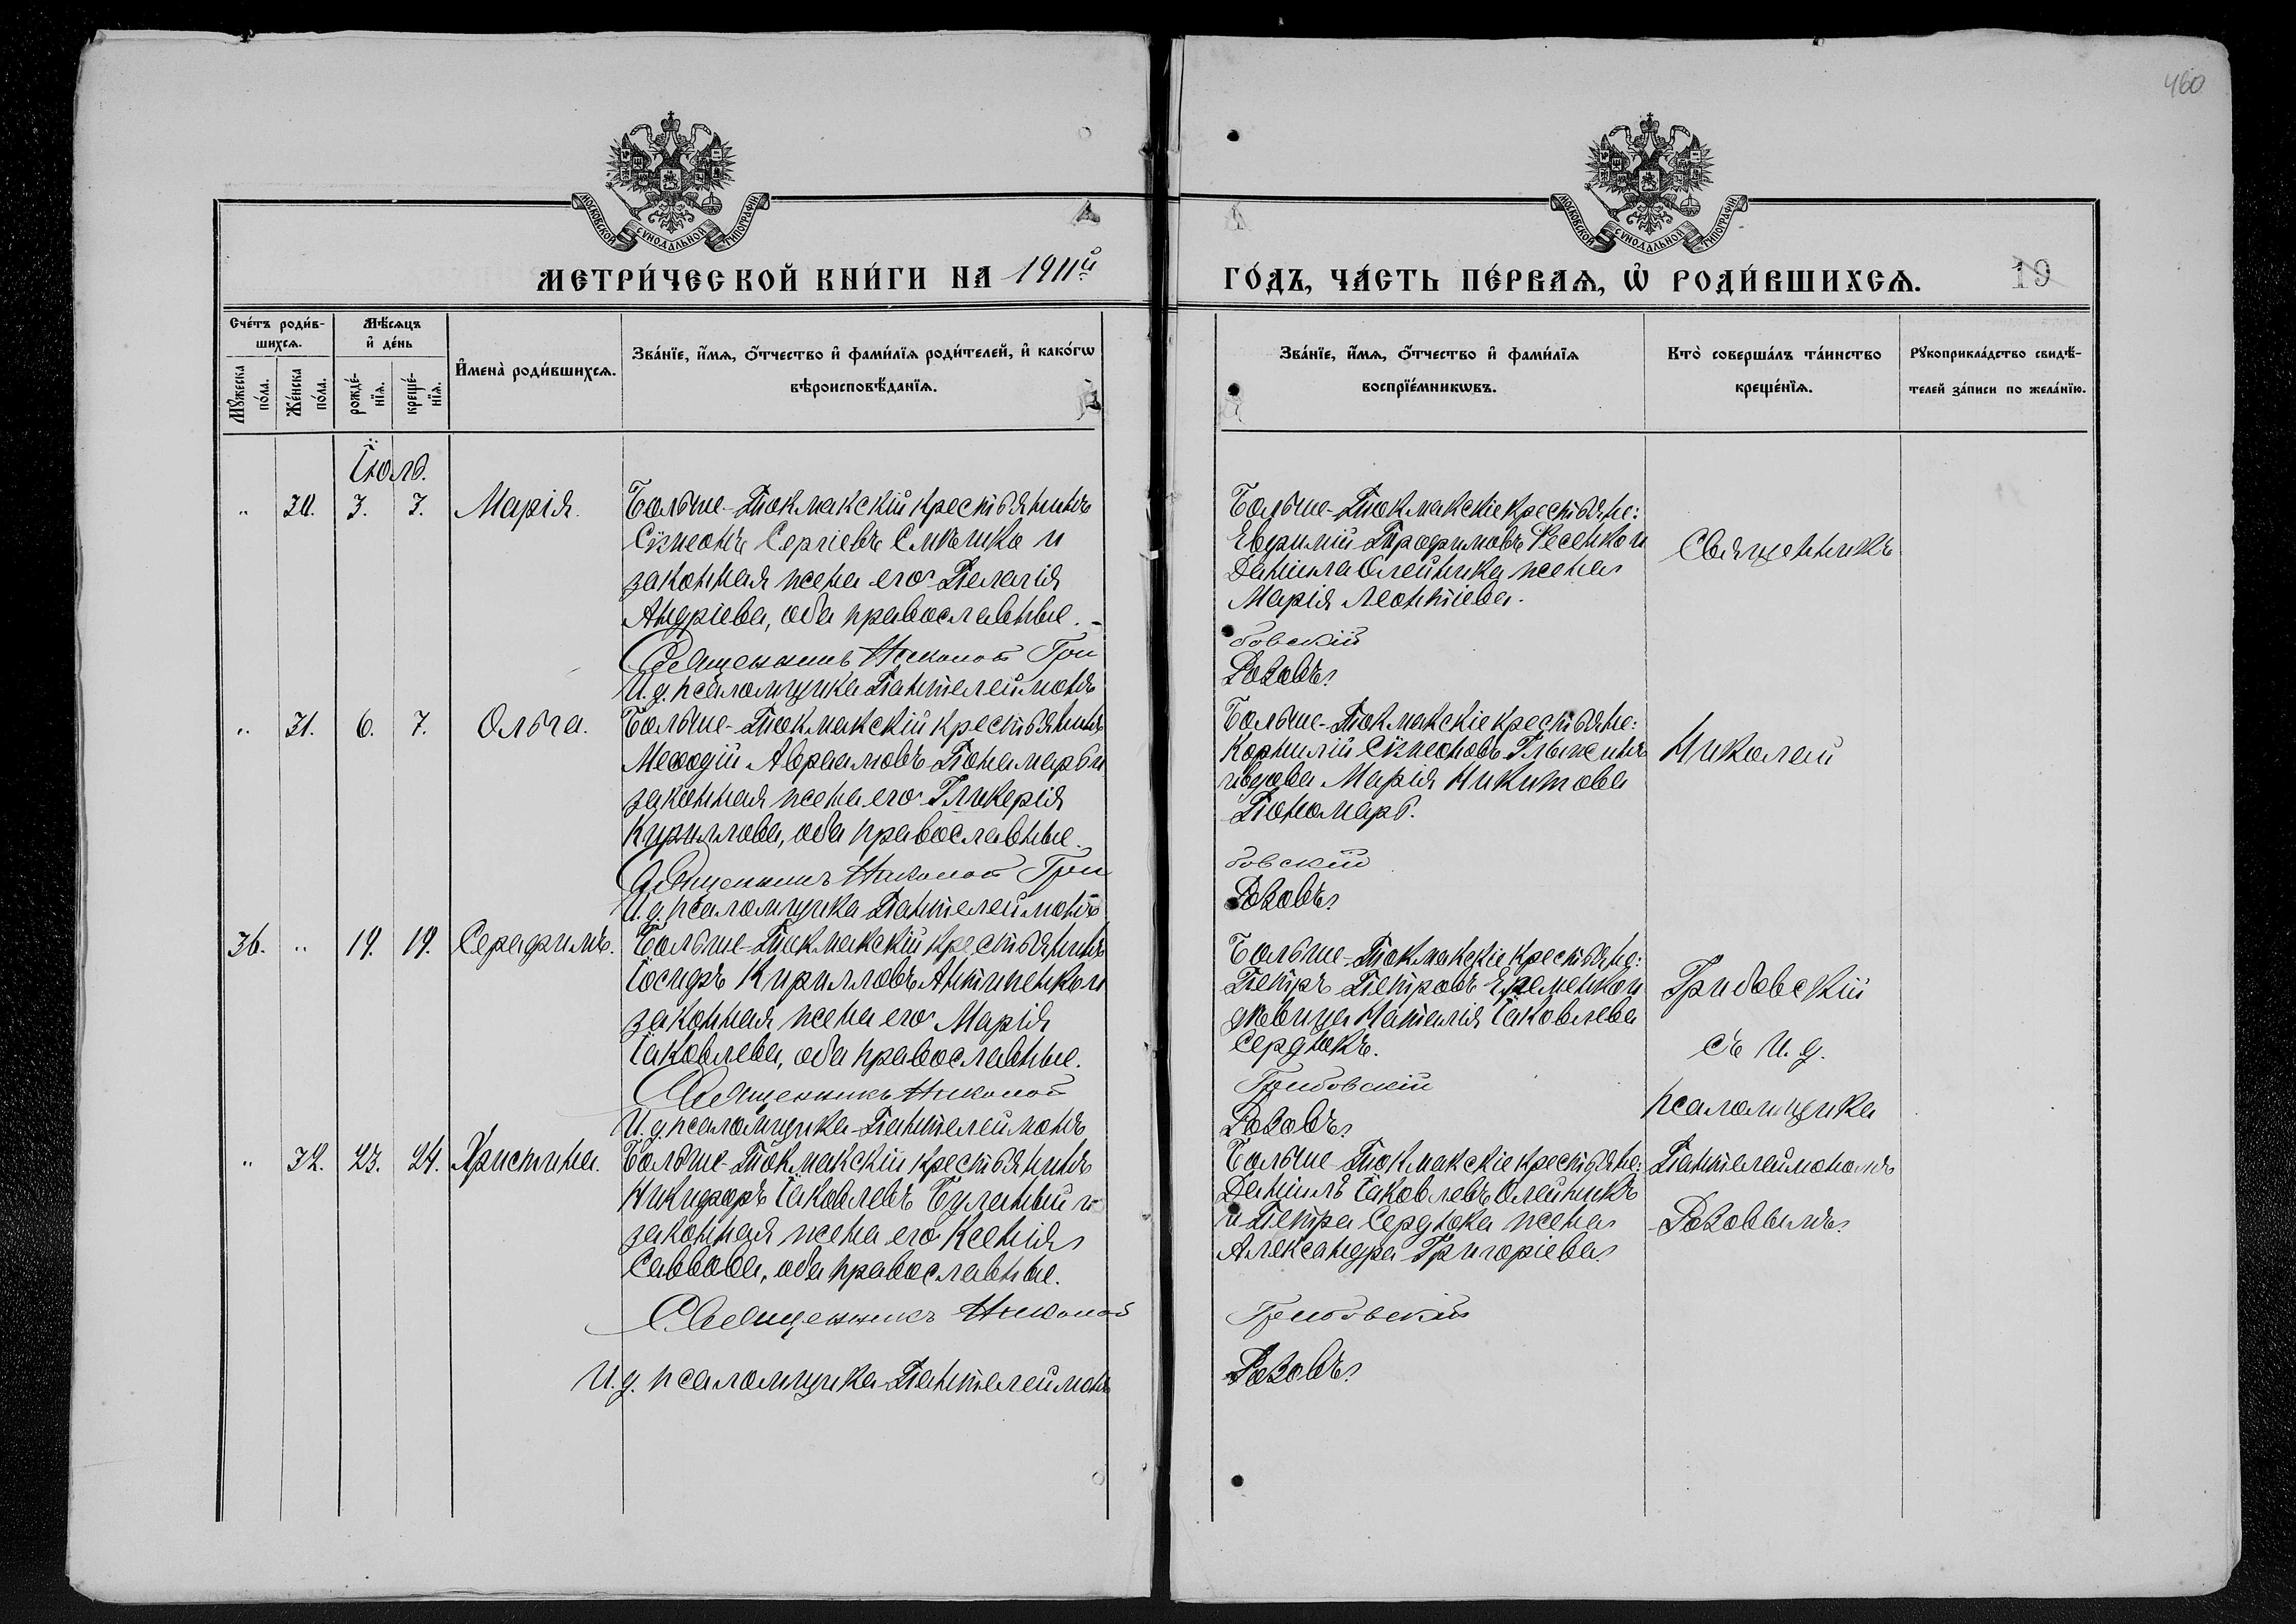 460
МОСКОВСКОЙ СѴНОДАЛЬНОЙ ТИПОГРАФІИ
МОСКОВСКОЙ СѴНОДАЛЬНОЙ ТИПОГРАФІИ
МЕТРИ́ЧЕСКОЙ КНИ́ГИ НА 1911й
ГО́ДЪ, ЧА́СТЬ ПЕ́РВАѦ, Ѡ҆ РОДИ́ВШИХСѦ.
19
Сче́тъ роди́в-
шихсѧ.
Мꙋ́жеска по́ла.
Же́нска по́ла.
Мѣ́сѧцъ
и҆ де́нь
рожде́-нїѧ.
креще́-нїѧ.
И҆мена̀ роди́вшихсѧ.
Зва́нїе, и҆́мѧ, ѻ҆́тчество и҆ фами́лїѧ роди́телей, и҆ како́гѡ
вѣроисповѣ́данїѧ.
Зва́нїе, и҆́мѧ, ѻ҆́тчество и҆ фами́лїѧ
воспрїе́мникѡвъ.
Кто̀ соверша́лъ та́инство
креще́нїѧ.
Рꙋкоприкла́дство свидѣ́-
телей за́писи по жела́нїю.
Іюль.
" 30. 3. 3. Марія.
Больше-Токмакскій крестьянинъ
Сѵмеонъ Сергіевъ Смѣшко и
законная жена его Пелагія
Андріева, оба православные.
Священникъ Николай Гри
И. д. псаломщика Пантелеймонъ
Больше-Токмакскіе крестьяне:
Евѳимій Трофимовъ Фесенко и
Даніила Олейника жена
Марія Леонтіева.
бовскій
Розовъ.
Священникъ
" 31. 6. 7. Ольга.
Больше-Токмакскій крестьянинъ
Меѳодій Авраамовъ Понамарь и
законная жена его Гликерія
Кириллова, оба православные.
Священникъ Николай Гри
И. д. псаломщика Пантелеймонъ
Больше-Токмакскіе крестьяне:
Корнилій Сѵмеоновъ
и вдова Марія Никитова
Пономарь.
бовскій
Розовъ.
Николай
36. " 19. 19. Серафимъ.
Больше-Токмакскій крестьянинъ
Іосифъ Кирилловъ Антипенко и
законная жена его Марія
Іаковлева, оба православные.
Священникъ Николай
И. д. псаломщика Пантелеймонъ
Больше-Токмакскіе крестьяне:
Петръ Петровъ Еременко и
дѣвица Наталія Іаковлева
Сердюкъ.
Грибовскій
Розовъ.
Грибовскій
съ И. д.
псаломщика
" 32. 23. 24. Христина.
Больше-Токмакскій крестьянинъ
Никифоръ Іаковлевъ Буланый и
законная жена его Ксенія
Саввова, оба православные.
Священникъ Николай
И. д. псаломщика Пантелеймонъ
Больше-Токмакскіе крестьяне:
Даніилъ Іаковлевъ Олейникъ
и Петра Сердюка жена
Александра Григоріева.
Грибовскій
Розовъ.
Пантелеймономъ
Розовымъ.